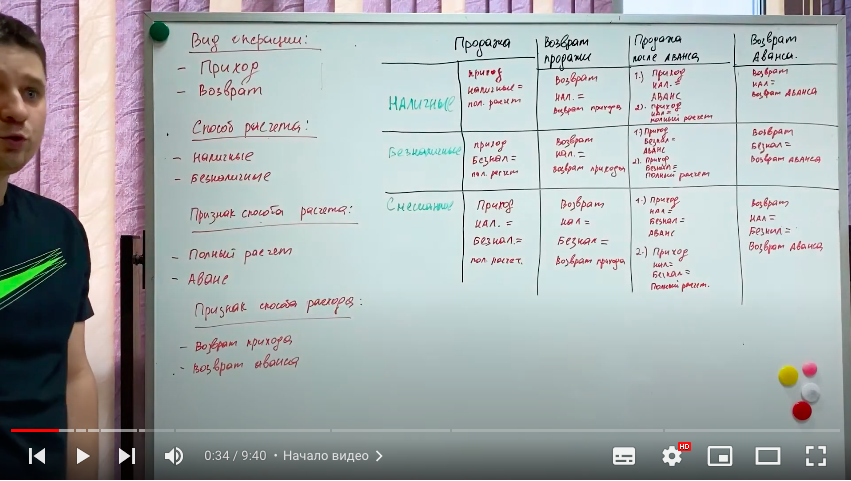 Вид операции:
- Приход
- Возврат
Способ расчета:
- наличные
- безналичные
Признак способа расчета:
- Полный расчет
- Аванс
Признак способа расхода:
- Возврат прихода
- Возврат аванса
Продажа
Возврат
продажи
Продажа
после аванса
Возврат
Аванса.
Наличные
приход
наличные =
пол. расчет
Возврат
нал. =
Возврат прихода
1.) Приход
нал. =
АВАНС
2). Приход
нал =
полный расчет
Возврат
нал =
Возврат аванса
Безналичные
приход
Безнал =
пол. расчет
Возврат
нал. =
Возврат прихода
1) Приход
Безнал =
АВАНС
2). Приход
Безнал =
Полный расчет
Возврат
Безнал =
Возврат аванса
Смешанные
Приход
нал. =
Безнал. =
пол. расчет.
Возврат
нал =
Безнал =
Возврат прихода
1.) Приход
нал =
Безнал =
АВАНС
2.) Приход
нал =
Безнал =
Полный расчет.
Возврат
нал =
Безнал =
Возврат Аванса
0:34 / 9:40 • Начало видео
HD